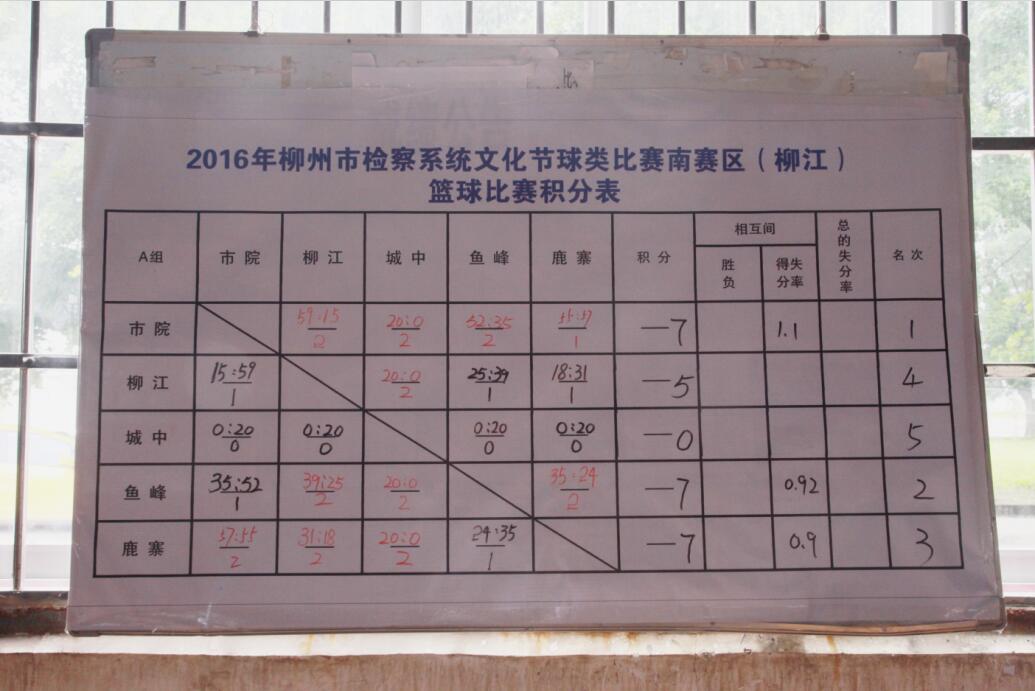 比
2016年柳州市检察系统文化节球类比赛南赛区（柳江）
篮球比赛积分表
A组 市院 柳江 城中 鱼峰 鹿寨 积分 相互间 胜负 得失分率 总的失分率 名次
市院 59:15 2 20:0 2 52:35 2 55:57 1 —7 1.1 1
柳江 15:59 1 20:0 2 25:39 1 18:31 1 —5 4
城中 0:20 0 0:20 0 0:20 0 0:20 0 —0 5
鱼峰 35:52 1 39:25 2 20:0 2 35:24 2 —7 0.92 2
鹿寨 57:55 2 31:18 2 20:0 2 24:35 1 —7 0.9 3